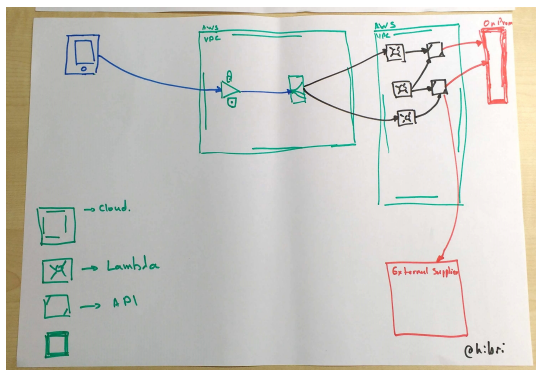 AWS
VPC
AWS
VPC
On Prem
→ Cloud.
→ Lambda
→ API
External Supplier
@hibri